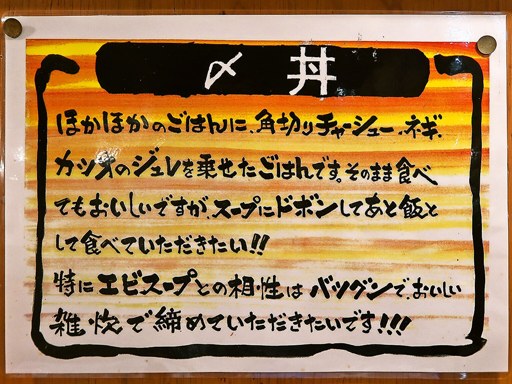 〆丼
ほかほかのごはんに、角切りチャーシュー、ネギ、
カツオのジュレを乗せたごはんです。そのまま食べ
てもおいしいですが、スープにドボンしてあと飯と
して食べていただきたい!!
特にエビスープとの相性はバツグンで、おいしい
雑炊で締めていただきたいです!!!